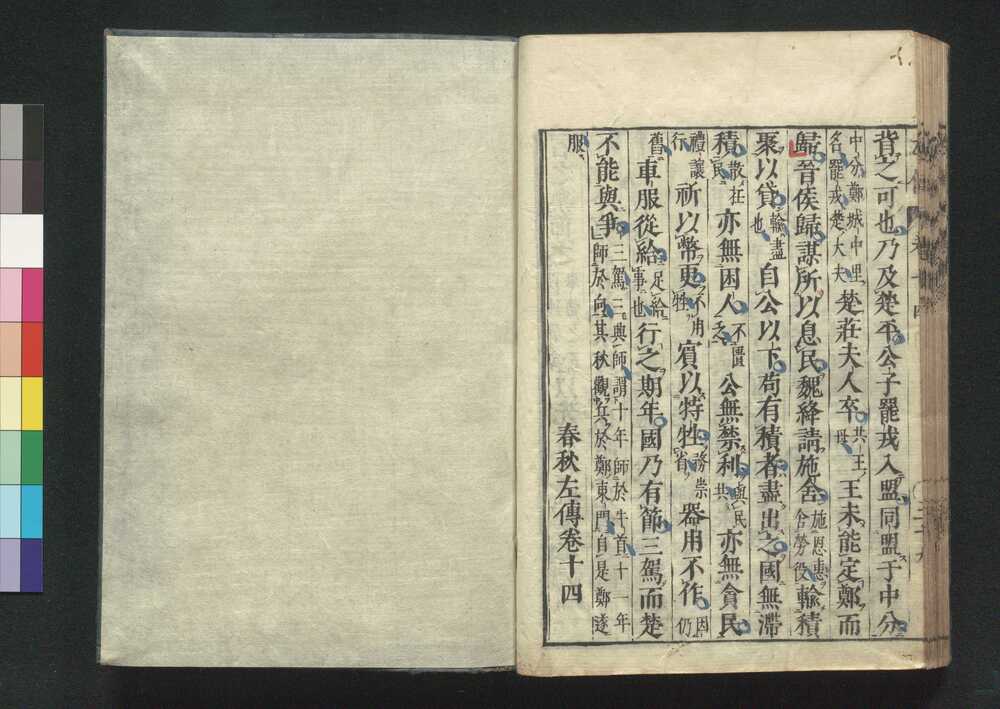 背之可也乃及楚平公子罷戎入盟同盟于中分
中分鄭城中里名罷戎楚大夫楚莊夫人卒共王母王未能定鄭而
歸晉侯歸謀所以息民魏絳請施舍施恩惠舍勞役輸積
聚以貸輸盡也自公以下苟有積者盡出之國無滯
積散在民亦無困人不匱乏公無禁利與民共亦無貪民
禮讓行祈以幣更不用牲賓以特牲務崇省器用不作因仍
舊車服從給足給事也行之期年國乃有節三駕而楚
不能與爭三駕三興師謂十年師於牛首十一年師於向其秋觀兵於鄭東門自是鄭遂
服
春秋左傳卷十四